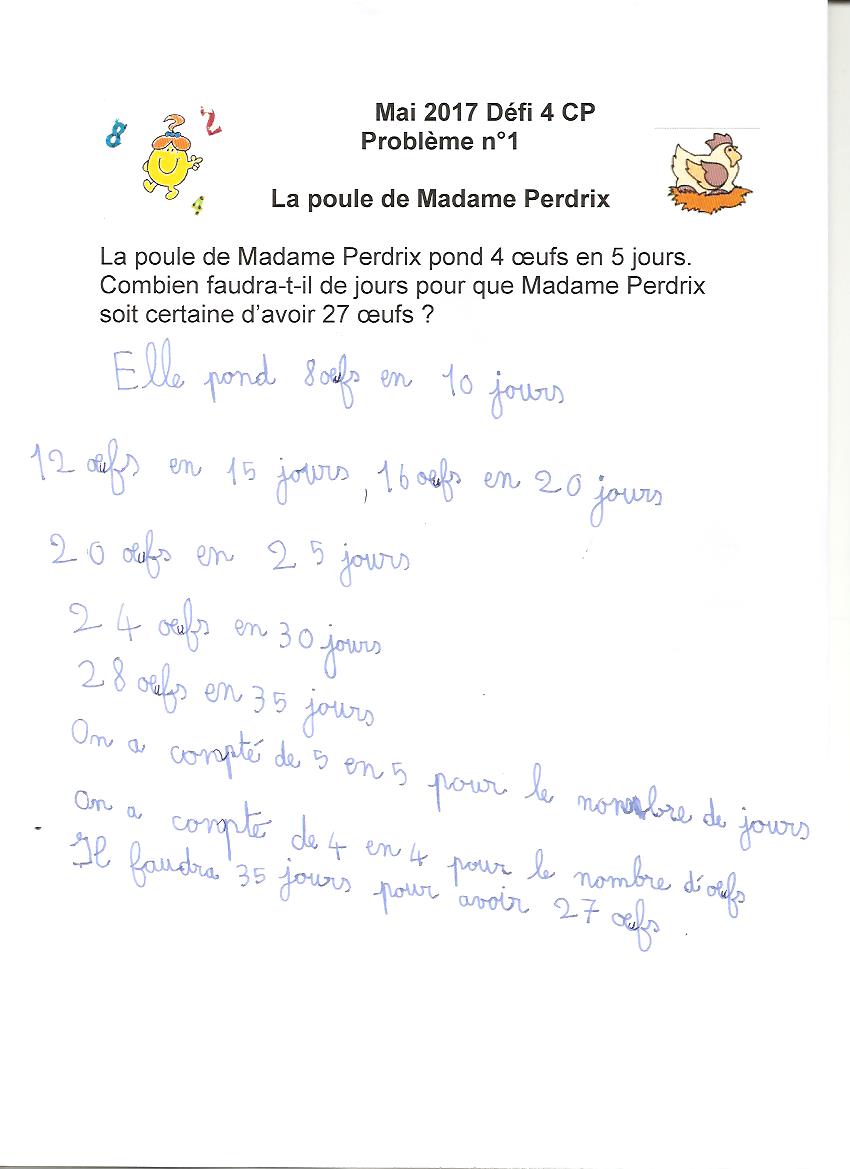 8 2
4
Mai 2017 Défi 4 CP
Problème n°1
La poule de Madame Perdrix
La poule de Madame Perdrix pond 4 œufs en 5 jours.
Combien faudra-t-il de jours pour que Madame Perdrix
soit certaine d'avoir 27 œufs ?
Elle pond 8 œufs en 10 jours
12 œufs en 15 jours, 16 œufs en 20 jours
20 œufs en 25 jours
24 œufs en 30 jours
28 œufs en 35 jours
On a compté de 5 en 5 pour le nombre de jours
On a compté de 4 en 4 pour le nombre d'œufs
Il faudra 35 jours pour avoir 27 œufs.